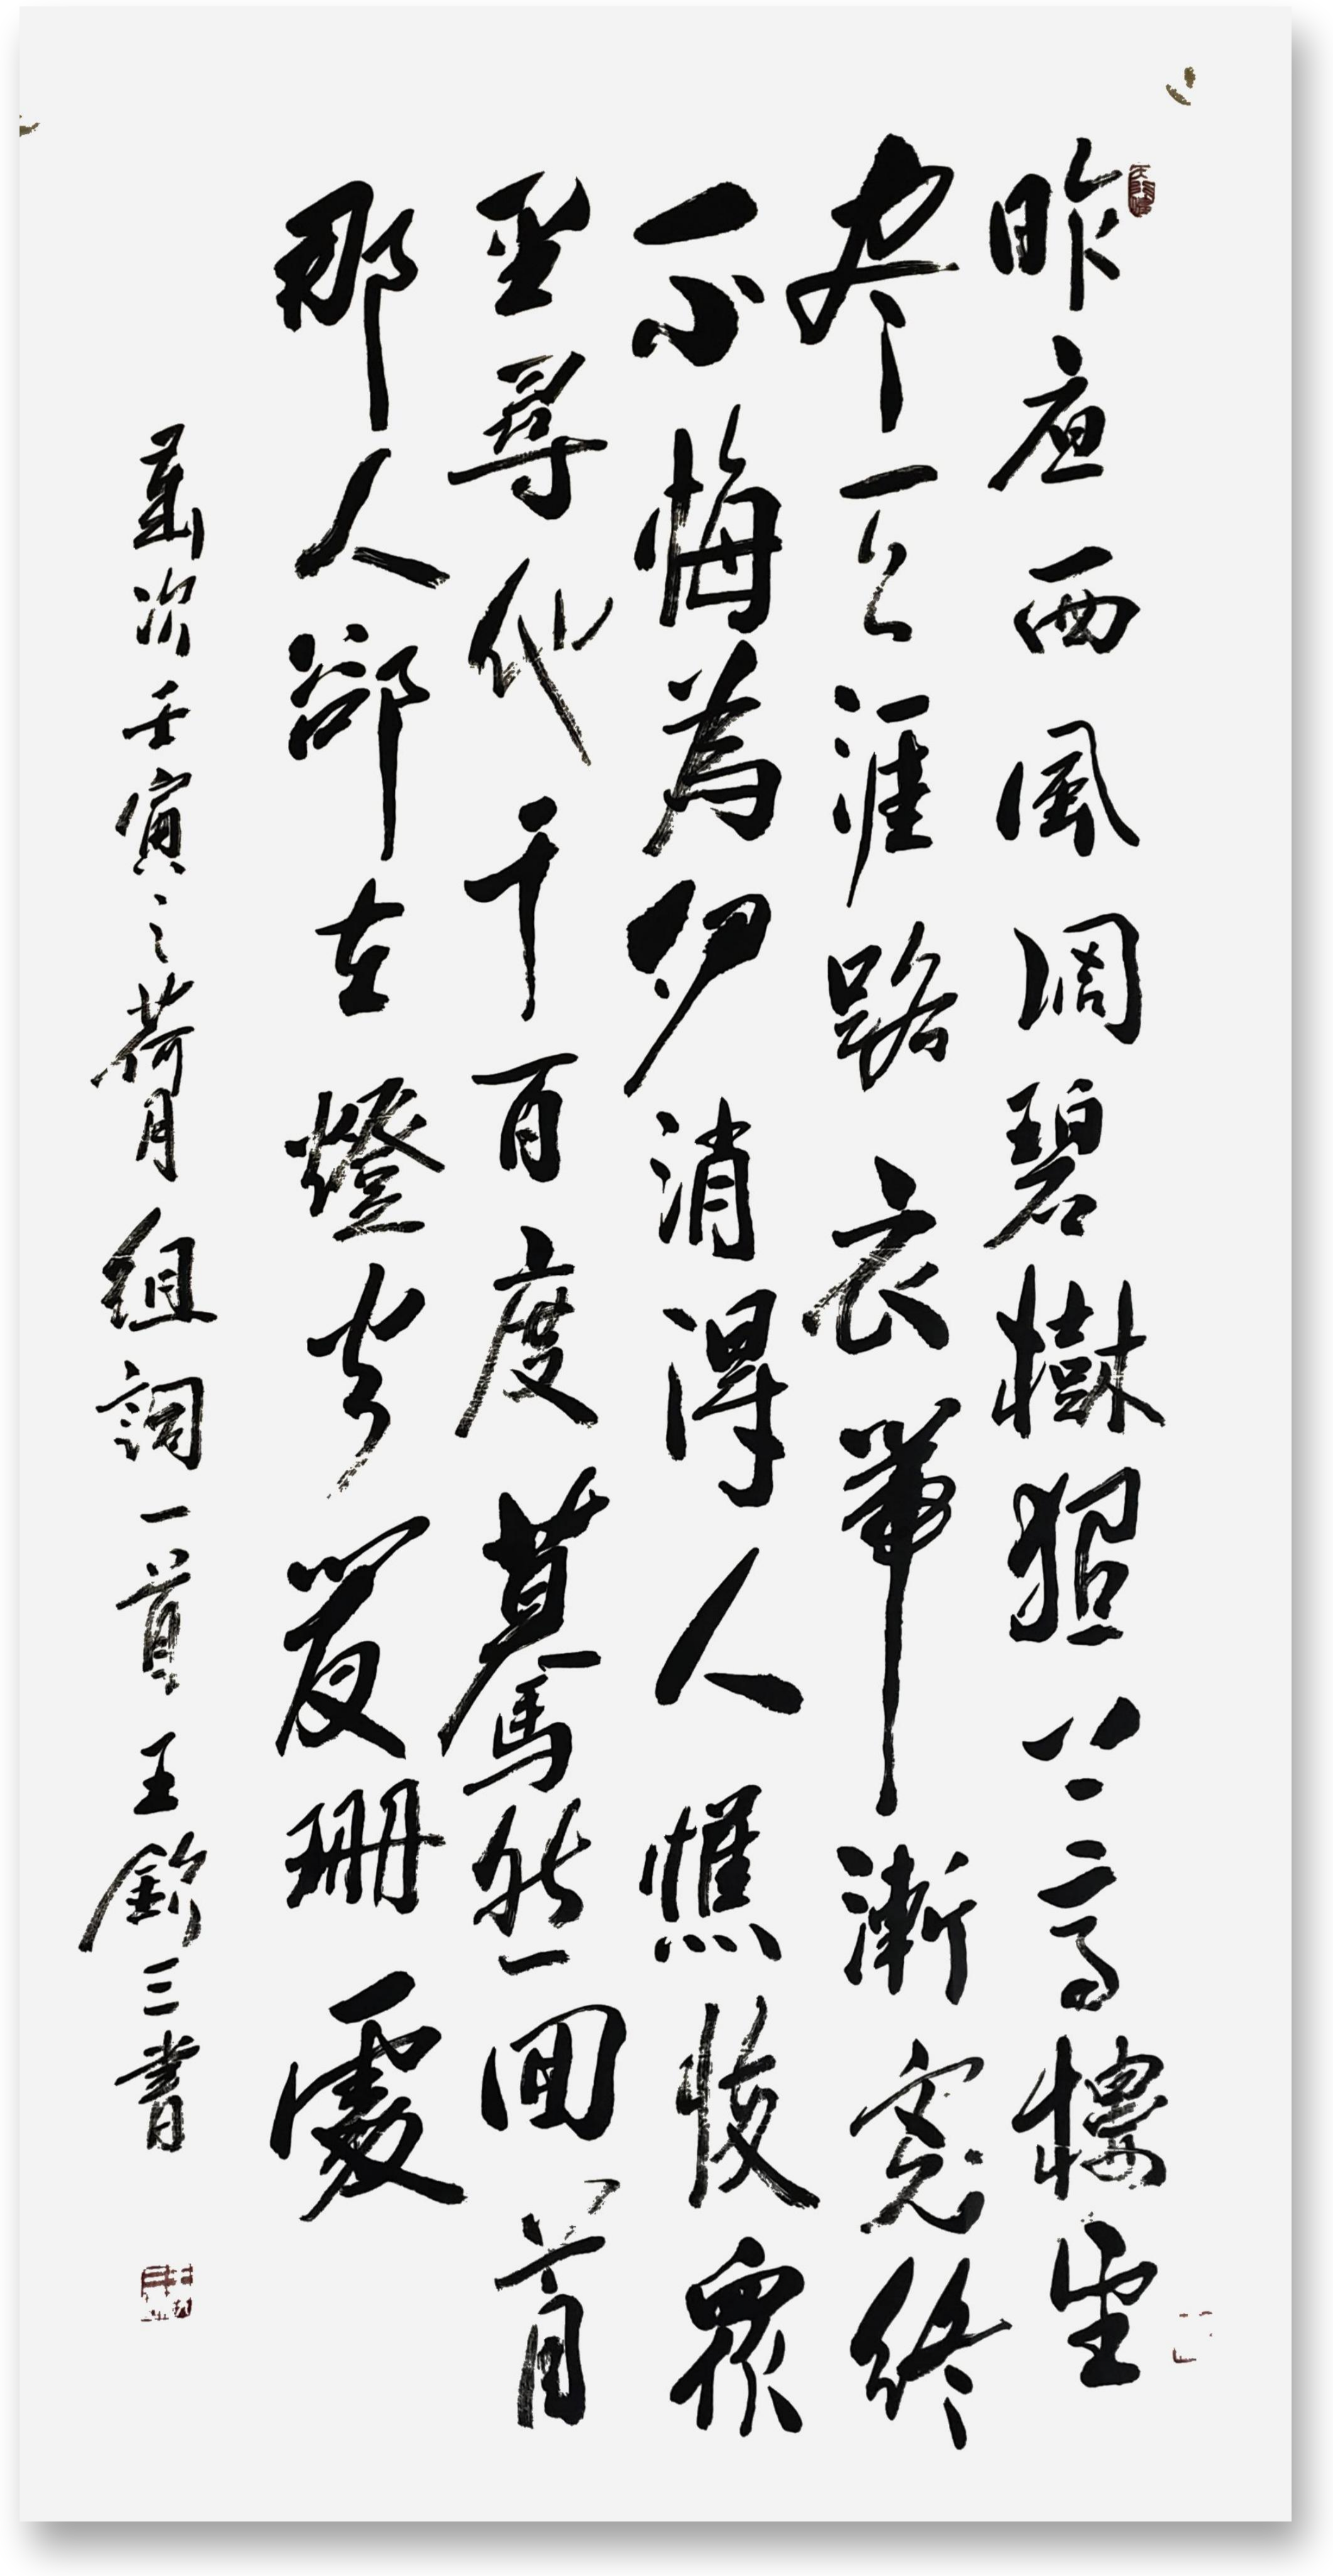 昨夜西風凋碧樹獨上高樓望
尽天涯路衣帶漸寬終
不悔為伊消得人憔悴眾
里尋他千百度驀然回首
那人卻在燈火闌珊處
歲次壬寅之荷月組詞一首王欽三書